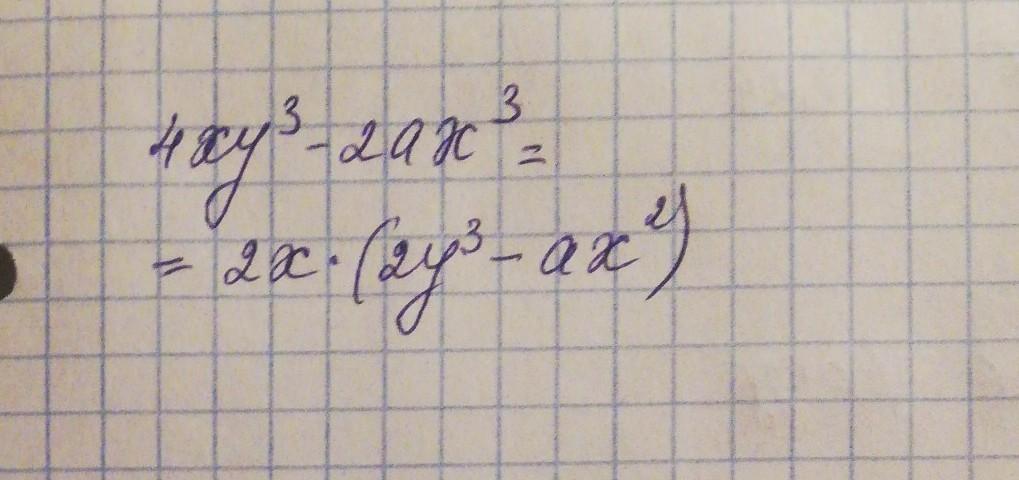 4xy³-2ax³=
= 2x·(2y³-ax²)